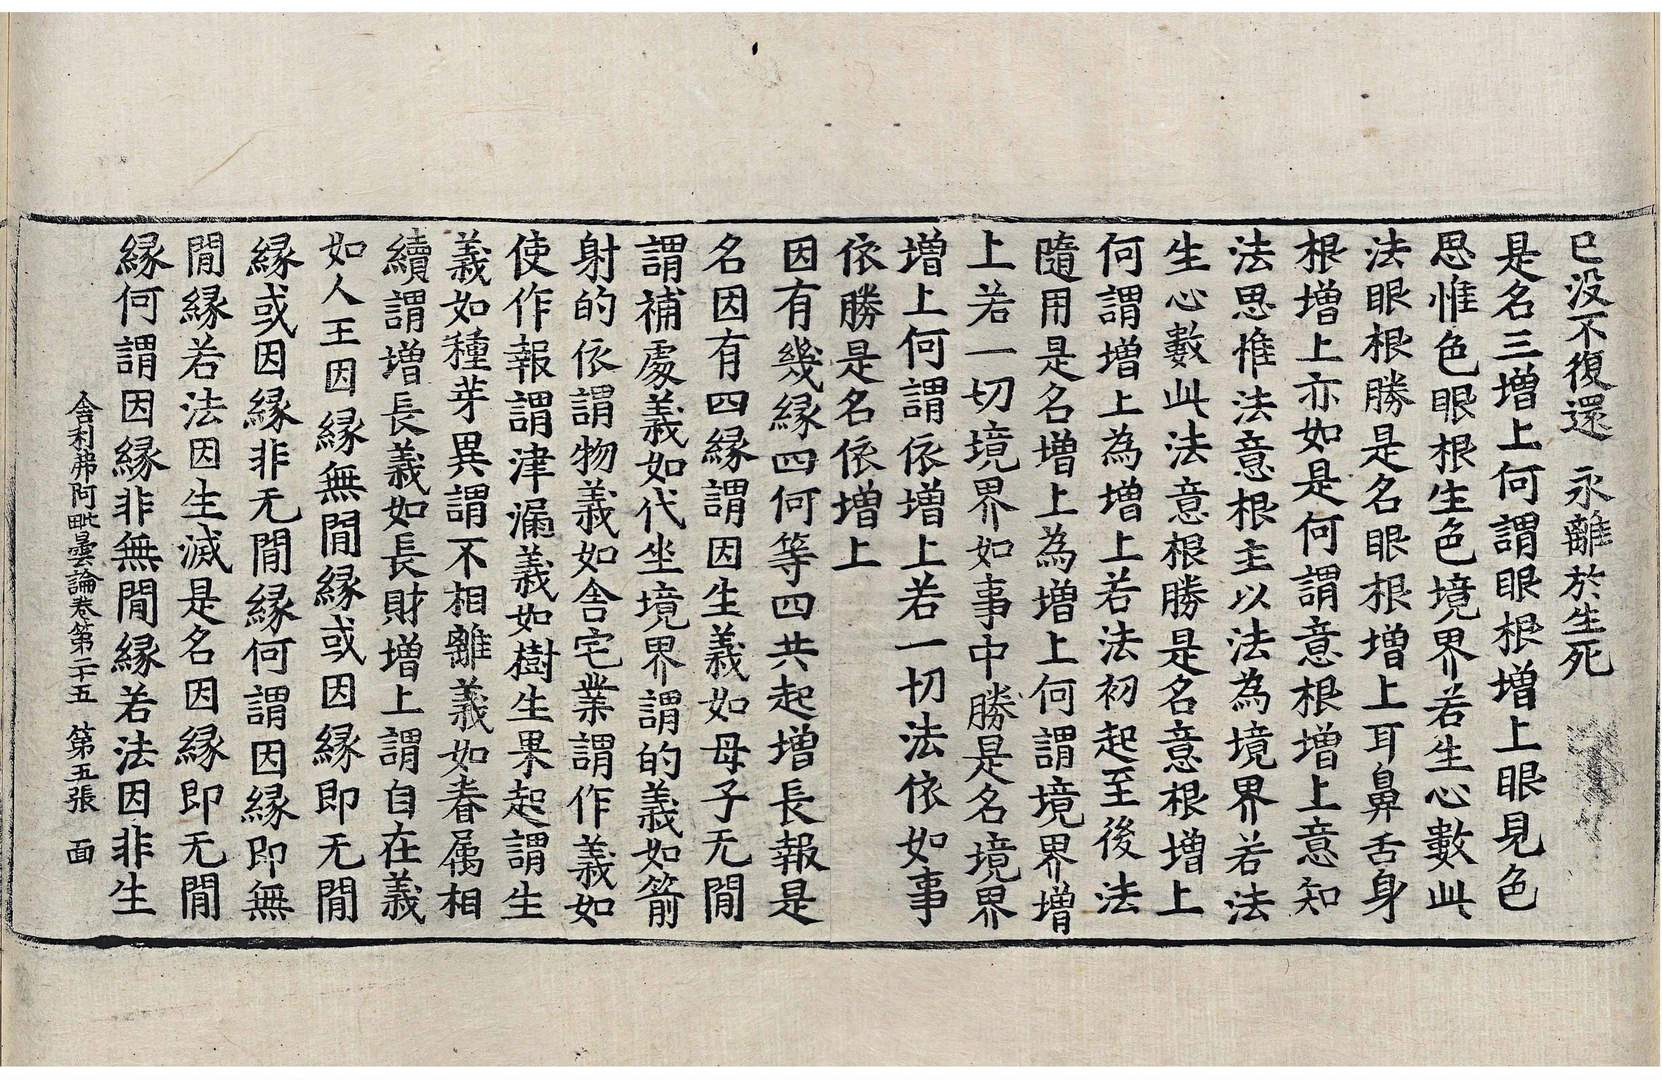 已没不復還　永離於生死
是名三增上何謂眼根增上眼見色
思惟色眼根生色境界若生心數此
法眼根勝是名眼根增上耳鼻舌身
根增上亦如是何謂意根增上意知
法思惟法意根主以法為境界若法
生心數此法意根勝是名意根增上
何謂增上為增上若法初起至後法
隨用是名增上為增上何謂境界增
上若一切境界如事中勝是名境界
增上何謂依增上若一切法依如事
依勝是名依增上
因有幾緣四何等四共起增長報是
名因有四緣謂因生義如母子无間
謂補處義如代坐境界謂的義如箭
射的依謂物義如舍宅業謂作義如
使作報謂津漏義如樹生果起謂生
義如種芽異謂不相離義如眷属相
續謂增長義如長財增上謂自在義
如人王因緣無間緣或因緣即无間
緣或因緣非无間緣何謂因緣即無
間緣若法因生滅是名因緣即无間
緣何謂因緣非無間緣若法因非生
舍利弗阿毗曇論卷第二十五　第五張　面